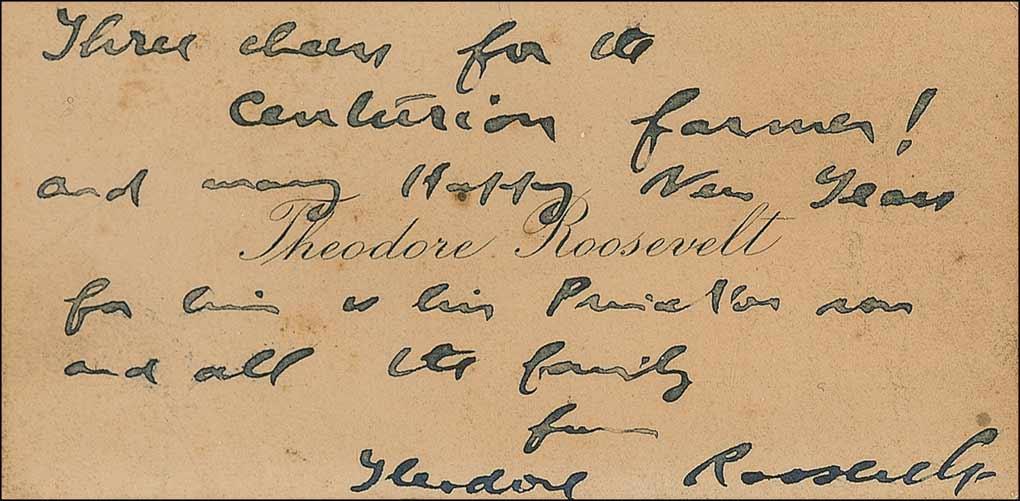 Three cheers for the
Centurion farmer!
and many Happy New Years
Theodore Roosevelt
for him & his Princeton son
and all the family
from
Theodore Roosevelt